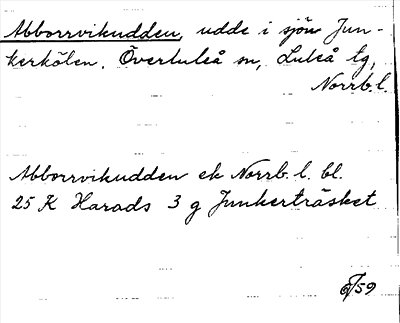 Abborrvikudden, udde i sjön Jun-
kerkölen. Överluleå sn, Luleå tg,
Norrb.l.
Abborrvikudden ek Norrb. l. bl.
25 K Harads 3 g Junkerträsket
6/59